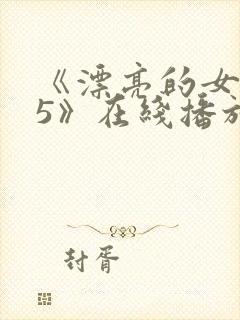 《漂亮的女
5》在线播放
封胥